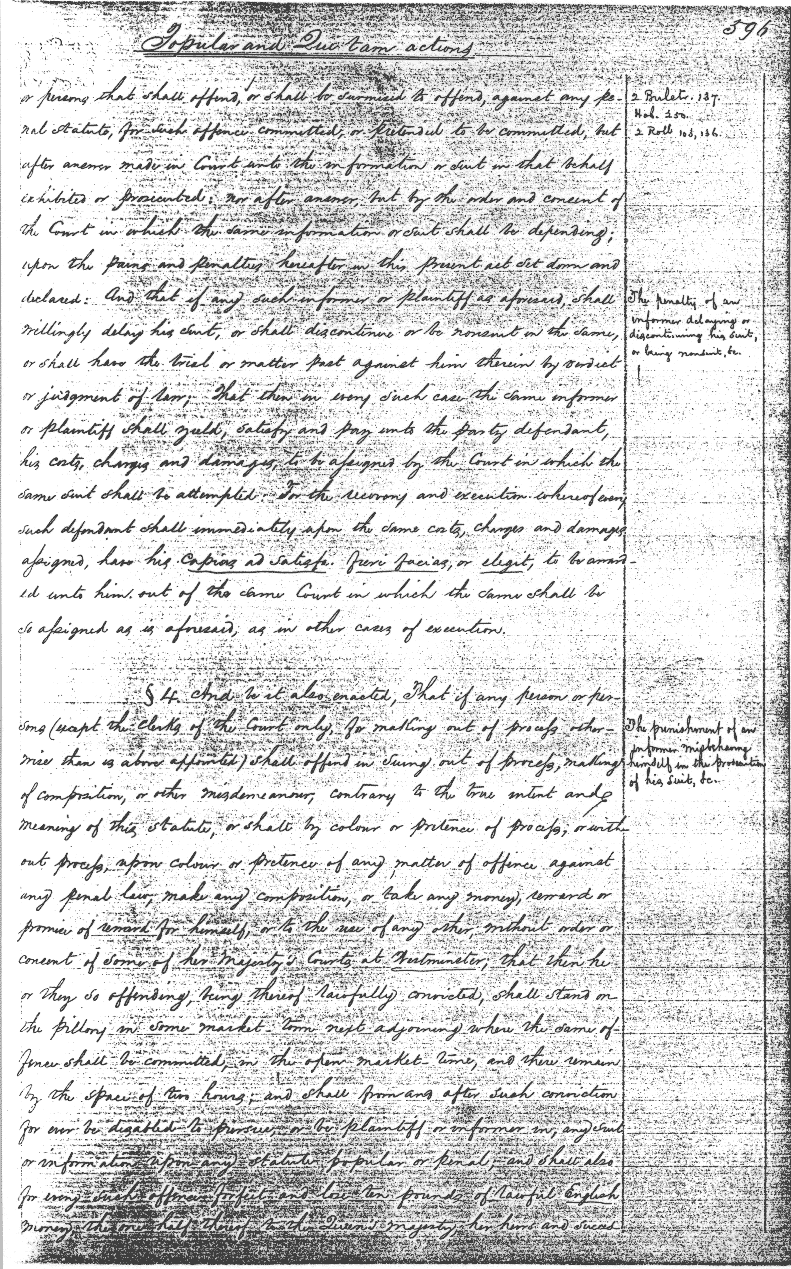 596
Popular and Qui tam actions
or persons that shall offend, or shall be surmised to offend, against any pe-
nal statute, for such offence committed, or pretended to be committed, but
after answer made in Court unto the information or suit in that behalf
exhibited or prosecuted; nor after answer, but by the order and consent of
the Court in which the same information or suit shall be depending;
upon the pains and penalties hereafter in this present act set down and
declared: And that if any such informer or plaintiff as aforesaid, shall
willingly delay his suit, or shall discontinue or be nonsuit in the same,
or shall have the trial or matter past against him therein by verdict
or judgment of law; That then in every such case the same informer
or plaintiff shall yield, satisfy and pay unto the party defendant,
his costs, charges and damages, to be assigned by the Court in which the
same suit shall be attempted. For the recovery and execution whereof every
such defendant shall immediately upon the same costs, charges and damages
assigned, have his capias ad satisfa. fieri facias, or elegit, to be award-
ed unto him out of the same Court in which the same shall be
so assigned as is aforesaid, as in other cases of execution.
2 Bulstr. 187.
Hob. 250.
2 Roll 103, 136.
The penalty of an
informer delaying or
discontinuing his suit,
or being nonsuit, &c.
§ 4. And be it also enacted, That if any person or per-
sons (except the clerks of the Court only, for making out of process other-
wise than is above appointed) shall offend in suing out of process, making
of composition, or other misdemeanour, contrary to the true intent and
meaning of this statute, or shall by colour or pretence of process, or with-
out process, upon colour or pretence of any matter of offence against
any penal law, make any composition, or take any money, reward or
promise of reward for himself, or to the use of any other, without order or
consent of some of her Majesty's Courts at Westminster, that then he
or they so offending, being thereof lawfully convicted, shall stand on
the pillory in some market-town next adjoining where the same of-
fence shall be committed, in the open market-time, and there remain
by the space of two hours; and shall from and after such conviction
for ever be disabled to pursue, or be plaintiff or informer in, any suit
or information upon any statute, popular or penal; and shall also
for every such offence forfeit and lose ten pounds of lawful English
money, the one half thereof to the Queen's majesty, her heirs and succes
The punishment of an
informer misbehaving
himself in the prosecution
of his suit, &c.